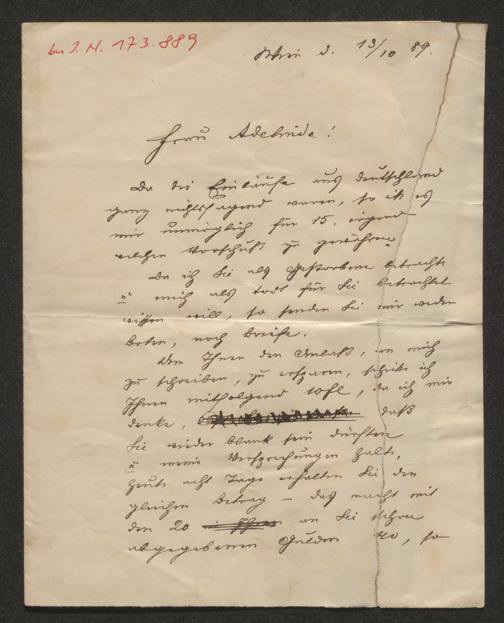 zu J. N. 173.889
Wien d. 13/10 89.
Frau Adelinde!
Da die Einläufe aus Deutschland
ganz nichtssagend waren, so ist es
mir unmöglich für 15. irgend
welchen Vorschuß zu gewähren.
Da ich Sie als Gestorbene betrachte
u mich als todt für Sie betrachtet
wissen will, so senden Sie mir weder
boten, noch Briefe.
Um Ihnen den Anlaß, an mich
zu schreiben, zu ersparen, schicke ich
Ihnen mitfolgend 10 fl, da ich mir
denke, daß
Sie wieder blank sein dürften
u meine Versprechungen halte,
heute acht Tage erhalten Sie den
gleichen Betrag – das macht mit
den 20 an Sie schon
abgegebenen Gulden 40, so